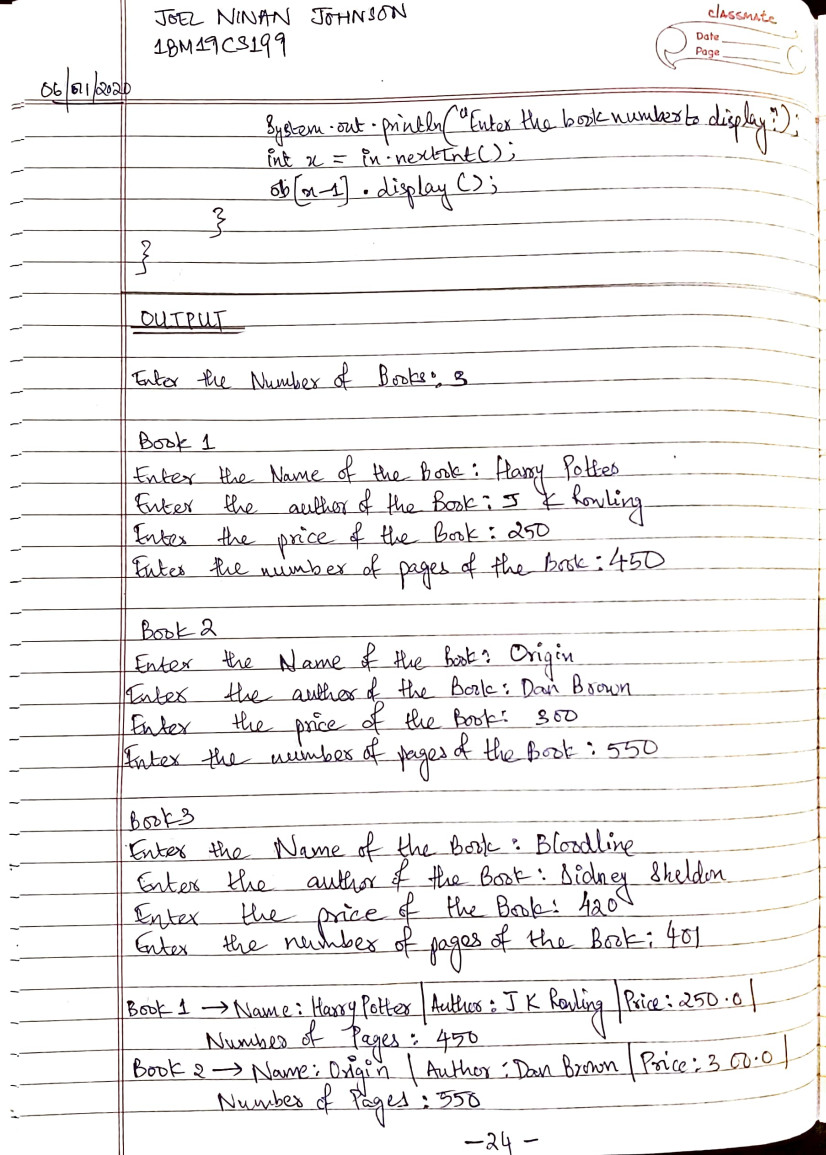 JOEL NINAN JOHNSON
1BM19CS199
classmate
Date
Page
06/01/2020
System.out.println("Enter the book number to display:");
int x = in.nextInt();
ob[x-1].display();
}
}
OUTPUT
Enter the Number of Books: 3
Book 1
Enter the Name of the Book: Harry Potter
Enter the author of the Book: J K Rowling
Enter the price of the Book: 250
Enter the number of pages of the Book: 450
Book 2
Enter the Name of the Book: Origin
Enter the author of the Book: Dan Brown
Enter the price of the Book: 300
Enter the number of pages of the Book: 550
Book 3
Enter the Name of the Book: Bloodline
Enter the author of the Book: Sidney Sheldon
Enter the price of the Book: 420
Enter the number of pages of the Book: 401
Book 1 → Name: Harry Potter | Author: J K Rowling | Price: 250.0 |
Number of Pages: 450
Book 2 → Name: Origin | Author: Dan Brown | Price: 300.0 |
Number of Pages: 550
-24-